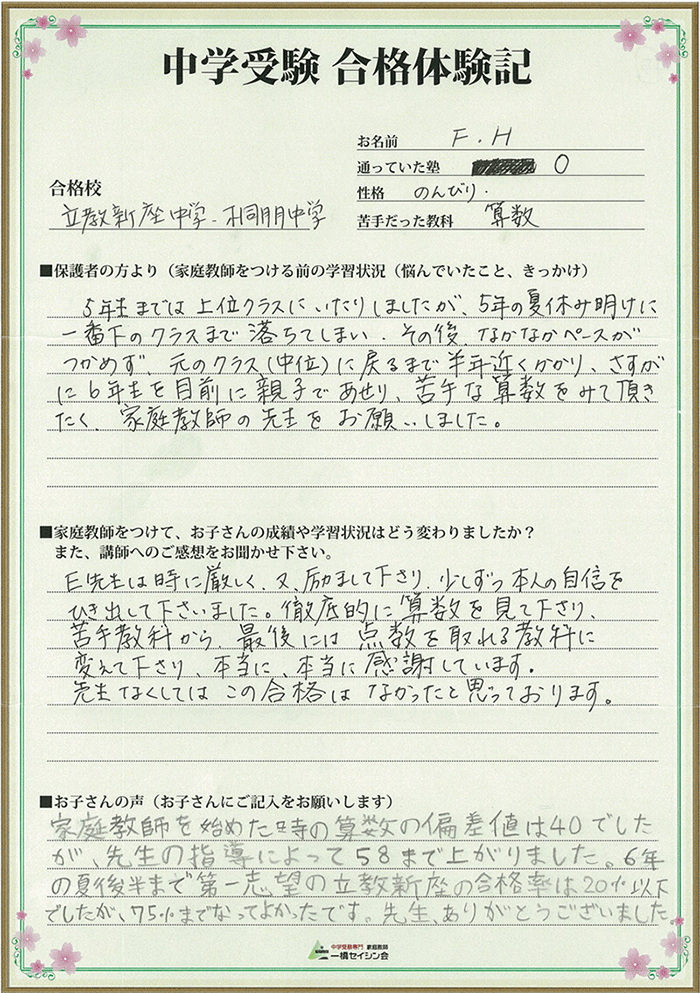 中学受験 合格体験記
お名前 F.H
通っていた塾 O
合格校
性格 のんびり.
立教新座中学、桐朋中学
苦手だった教科 算数
■保護者の方より（家庭教師をつける前の学習状況（悩んでいたこと、きっかけ）
5年生までは上位クラスにいたりしましたが、5年の夏休み明けに
一番下のクラスまで落ちてしまい、その後、なかなかペースが
つかめず、元のクラス(中位)に戻るまで半年近くかかり、さすが
に6年生を目前に親子であせり、苦手な算数をみて頂き
たく、家庭教師の先生をお願いしました。
■家庭教師をつけて、お子さんの成績や学習状況はどう変わりましたか？
また、講師へのご感想をお聞かせ下さい。
E先生は時に厳しく、又、励まして下さり、少しずつ本人の自信を
ひき出して下さいました。徹底的に算数を見て下さり、
苦手教科から、最後には点数を取れる教科に
変えて下さり、本当に、本当に感謝しています。
先生なくしてはこの合格はなかったと思っております。
■お子さんの声（お子さんにご記入をお願いします）
家庭教師を始めた時の算数の偏差値は40でした
が、先生の指導によって58まで上がりました。6年
の夏後半まで第一志望の立教新座の合格率は20%以下
でしたが、75%までなってよかったです。先生、ありがとうございました
中学受験専門 家庭教師
一橋セイシン会